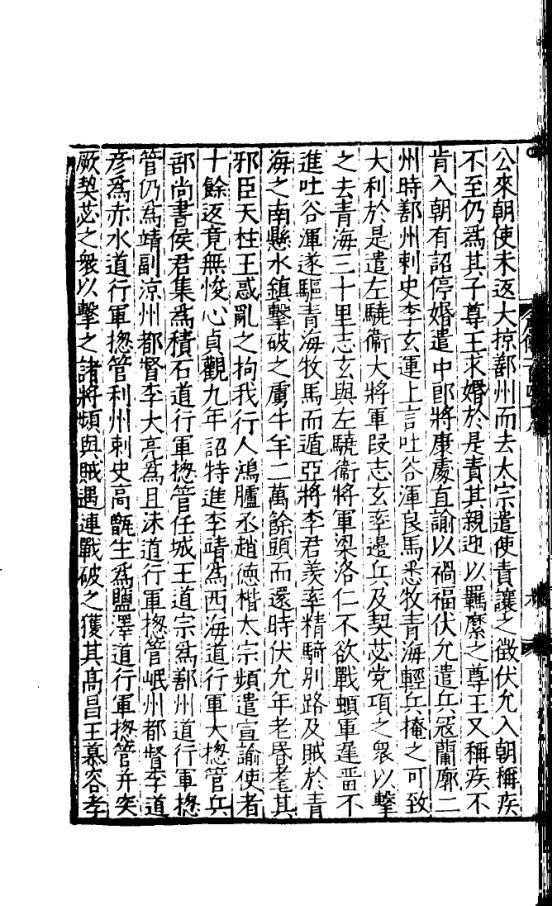 公來朝使未返大掠鄯州而去太宗遣使責讓之徵伏允入朝稱疾
不至仍爲其子尊王求婚於是責其親迎以羈縻之尊王又稱疾不
肯入朝有詔停婚遣中郎將康處直諭以禍福伏允遣兵寇蘭廓二
州時鄯州刺史李玄運上言吐谷渾良馬悉牧青海輕兵掩之可致
大利於是遣左驍衛大將軍段志玄率邊兵及契苾党項之衆以擊
之去青海三十里志玄與左驍衛將軍梁洛仁不欲戰頓軍遲留不
進吐谷渾遂驅青海牧馬而遁亞將李君羨率精騎別路及賊於青
海之南懸水鎮擊破之虜牛羊二萬餘頭而還時伏允年老昏耄其
邪臣天柱王惑亂之拘我行人鴻臚丞趙德楷太宗頻遣宣諭使者
十餘返竟無悛心貞觀九年詔特進李靖爲西海道行軍大揔管兵
部尚書侯君集爲積石道行軍揔管任城王道宗爲鄯州道行軍揔
管仍爲靖副涼州都督李大亮爲且沫道行軍揔管岷州都督李道
彦爲赤水道行軍揔管利州刺史高甑生爲鹽澤道行軍揔管并突
厥契苾之衆以擊之諸將頻與賊遇連戰破之獲其髙昌王慕容孝